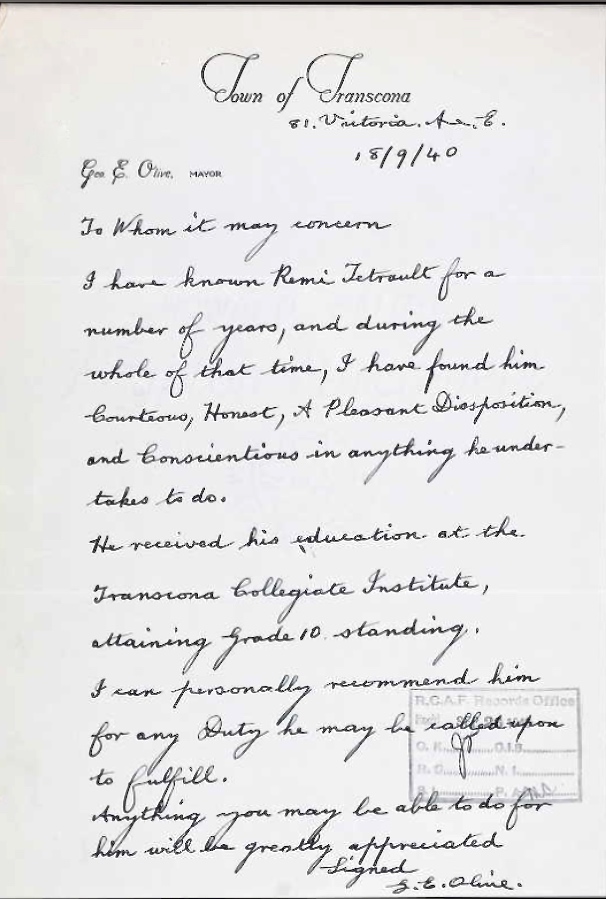 Town of Transcona
81. Victoria. Ave. E.
18/9/40
Geo. E. Olive, MAYOR
To Whom it may concern
I have known Remi Tetrault for a
number of years, and during the
whole of that time, I have found him
Courteous, Honest, A Pleasant Dissposition,
and Conscientious in anything he under-
takes to do.
He received his education at the
Transcona Collegiate Institute,
attaining Grade 10 standing.
I can personally recommend him
R.C.A.F. Records Office
for any Duty he may be called upon
to fulfill.
Anything you may be able to do for
him will be greatly appreciated
Signed
G. E. Olive.